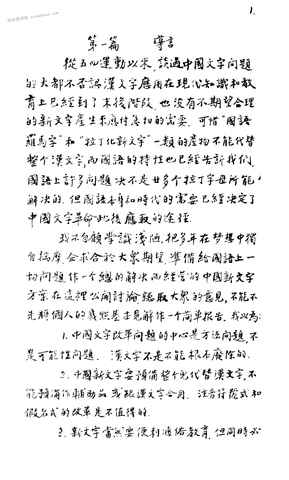 1.
第一篇 導言
從五四運動以來，談過中國文字問題
的大都不否認漢文字應用在現代知識和教
育上已經到了末後階段，也沒有不期望合理
的新文字產生來應付急切的需要。可惜“國語
羅馬字”和“拉丁化新文字”一類的產物不能代替
整个漢文字，而國語的特性也已經告訴我們，
國語上許多問題決不是廿多个拉丁字母所能
解決的。但國語本身和時代的需要已經決定了
中國文字革命此後應取的途徑。
我不自顧學識淺陋，把多年在夢想中獨
自揣摩，企求合於大眾期望，準備給國語上一
切問題作一个總的解決而經營的中國新文字
方案，在這裡公開討論，聽取大眾的意見，不能不
先將個人的義照基本見解作一个簡單報告，我以為：
1. 中國文字改革問題的中心是方法問題，不
是可能性問題。漢文字不是不能根本廢除的。
2. 中國新文字要預備整个兒代替漢文字，不
能預備作輔助品，或跟漢文字合用。注音符號式和
假名式的改革是不值得的。
3. 新文字當然要便利通俗教育，但同時必